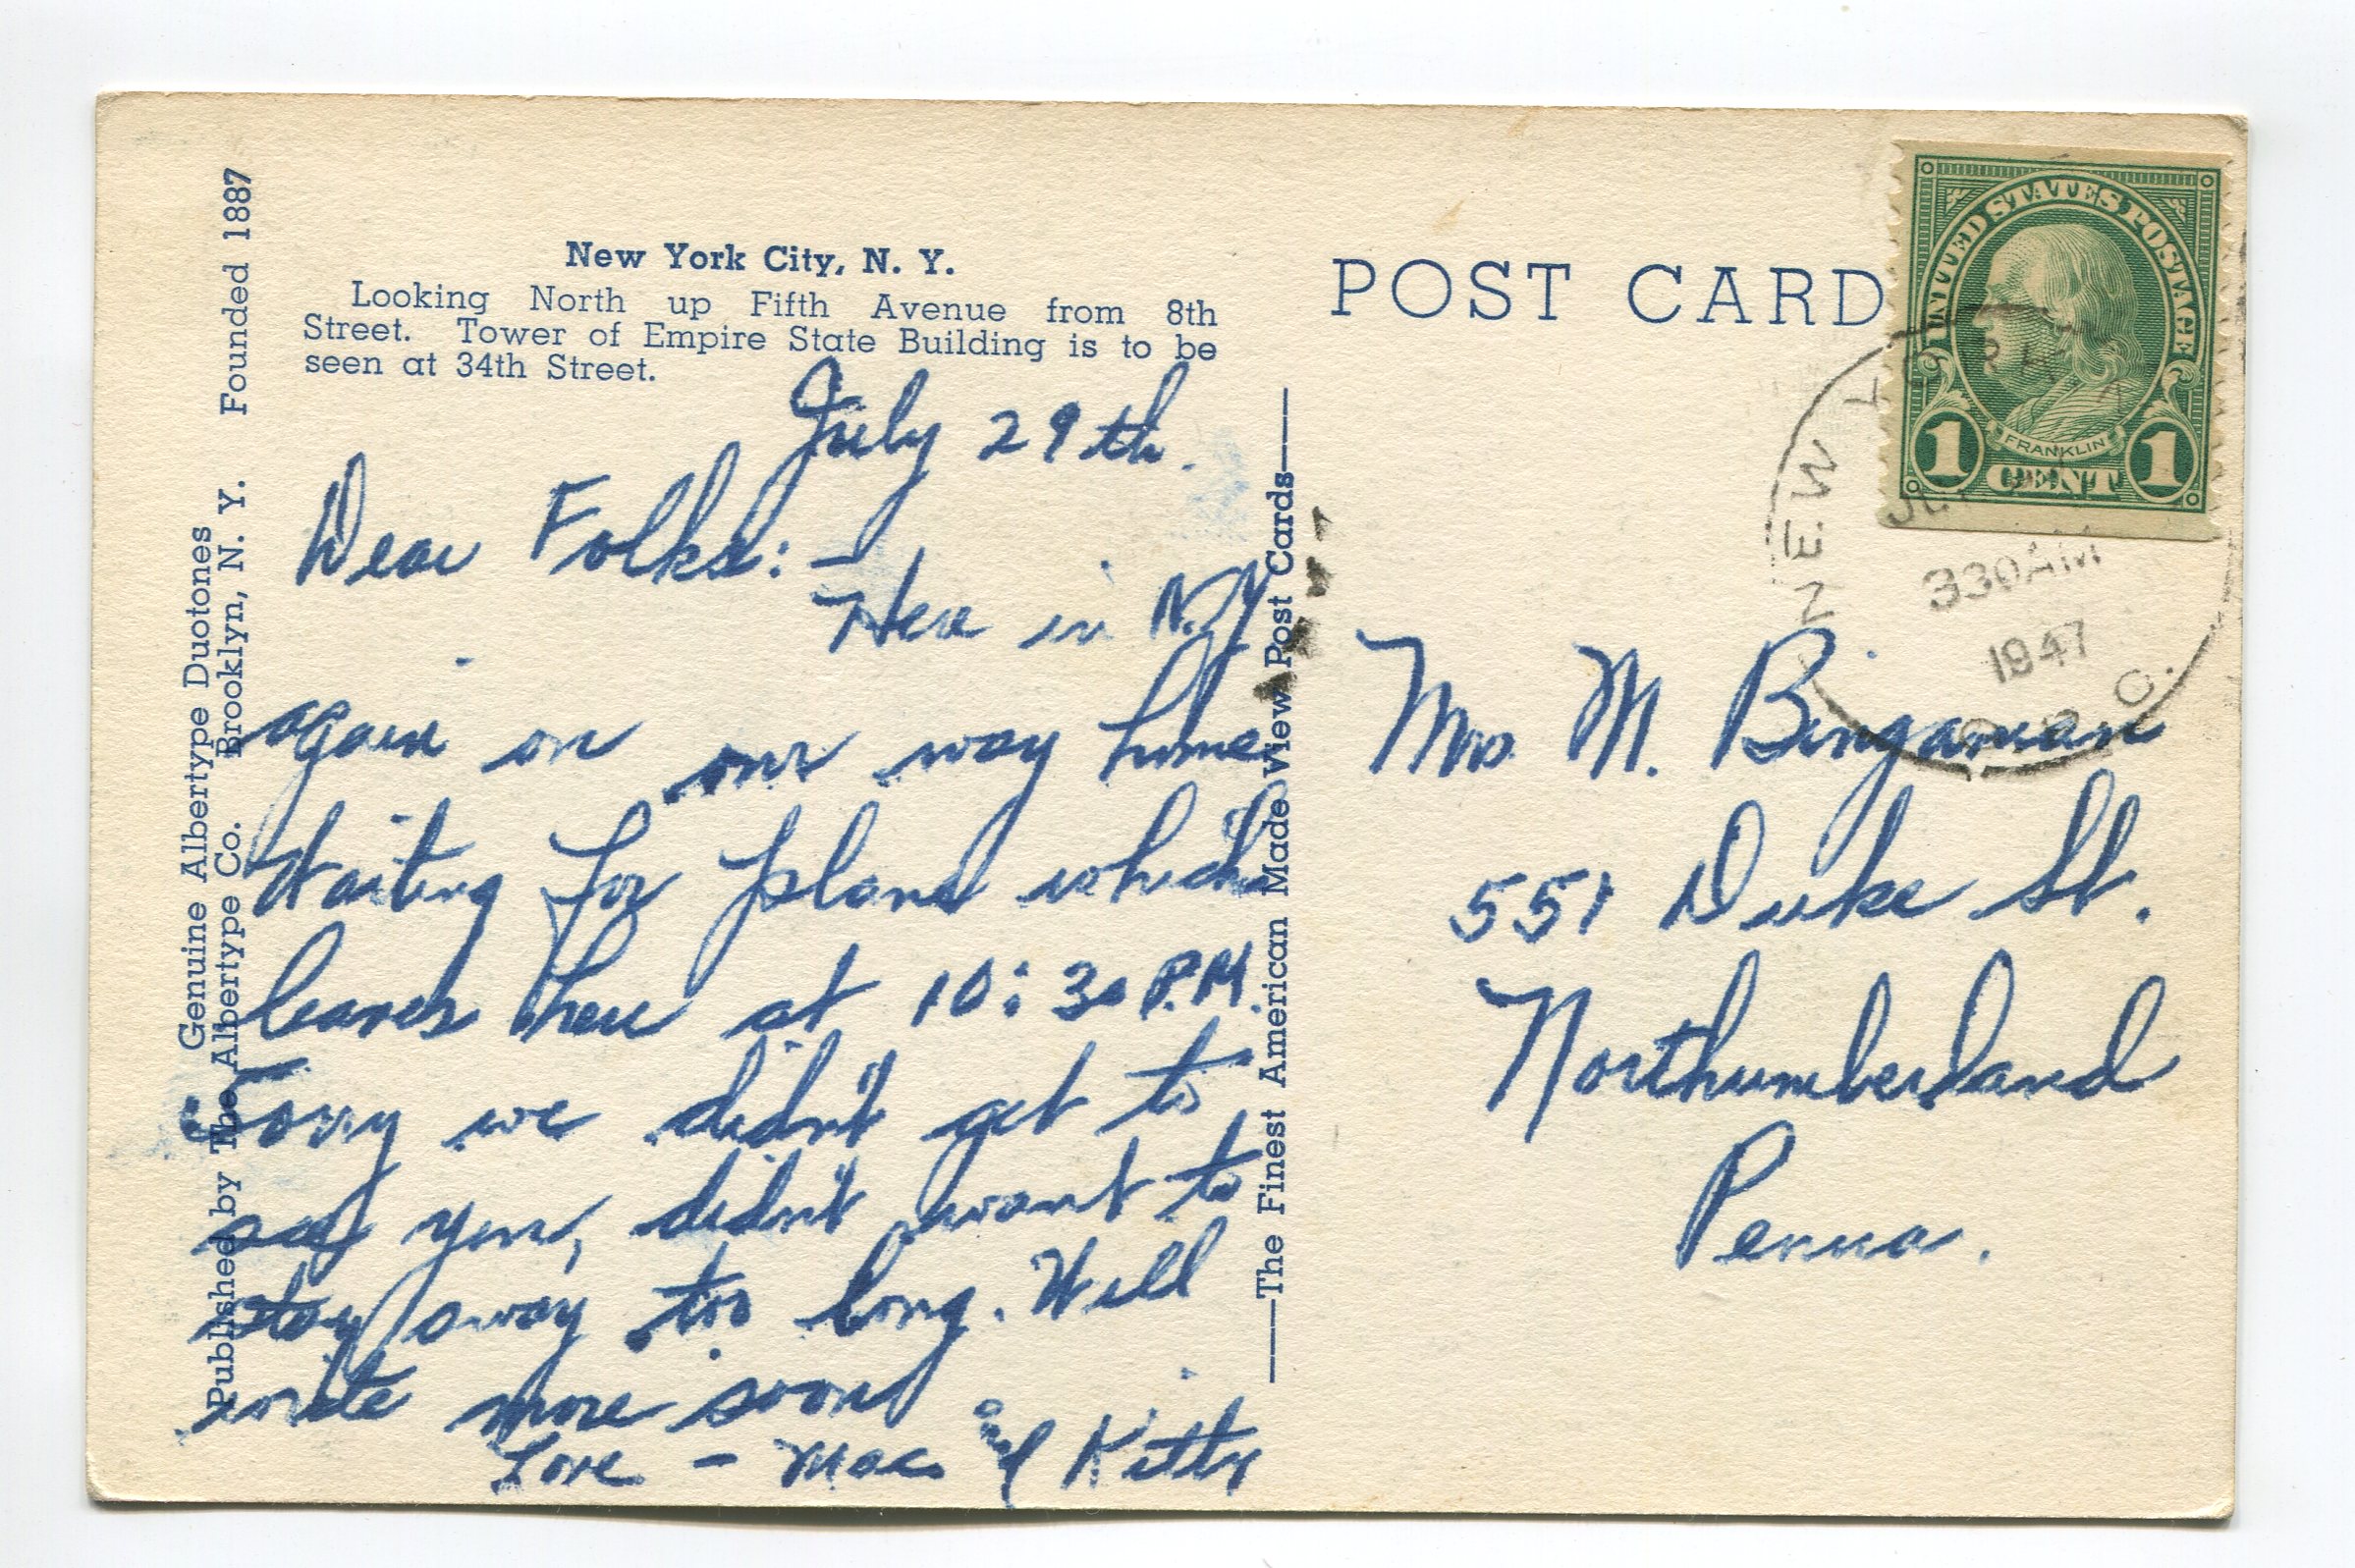 New York City, N. Y.
Looking North up Fifth Avenue from 8th
Street. Tower of Empire State Building is to be
seen at 34th Street.
July 29th.
Dear Folks: —
Here in N.Y
again on our way home
Waiting for plane which
leaves here at 10:30 P.M.
Sorry we didn't get to
see you, didn't want to
stay away too long. Will
write more soon
Love — Mac and Kitty
Genuine Albertype Duotones
Published by The Albertype Co. Brooklyn, N. Y. Founded 1887
——The Finest American Made View Post Cards——
POST CARD
UNITED STATES POSTAGE
FRANKLIN
1 CENT 1
NEW YORK
330AM
1947
Mrs. M. Bingaman
551 Duke St.
Northumberland
Penna.